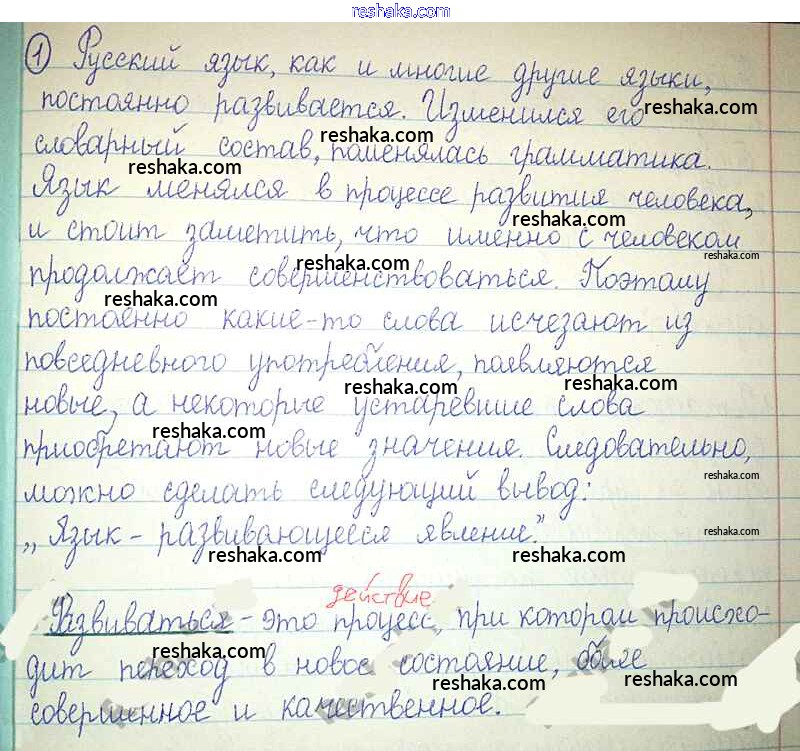 www.reshaka.com
① Русский язык, как и многие другие языки,
постоянно развивается. Изменился его
reshaka.com
словарный состав, поменялась грамматика.
reshaka.com
reshaka.com
Язык менялся в процессе развития человека,
reshaka.com
и стоит заметить, что именно с человеком
reshaka.com
reshaka.com
продолжает совершенствоваться. Поэтому
reshaka.com
постоянно какие-то слова исчезают из
повседневного употребления, появляются
reshaka.com
reshaka.com
новые, а некоторые устаревшие слова
reshaka.com
приобретают новые значения. Следовательно,
reshaka.com
можно сделать следующий вывод:
„Язык - развивающееся явление".
reshaka.com
reshaka.com
reshaka.com
действие
Развиваться - это процесс, при котором происхо-
reshaka.com
дит переход в новое состояние, более
reshaka.com
reshaka.com
reshaka.com
совершенное и качественное.